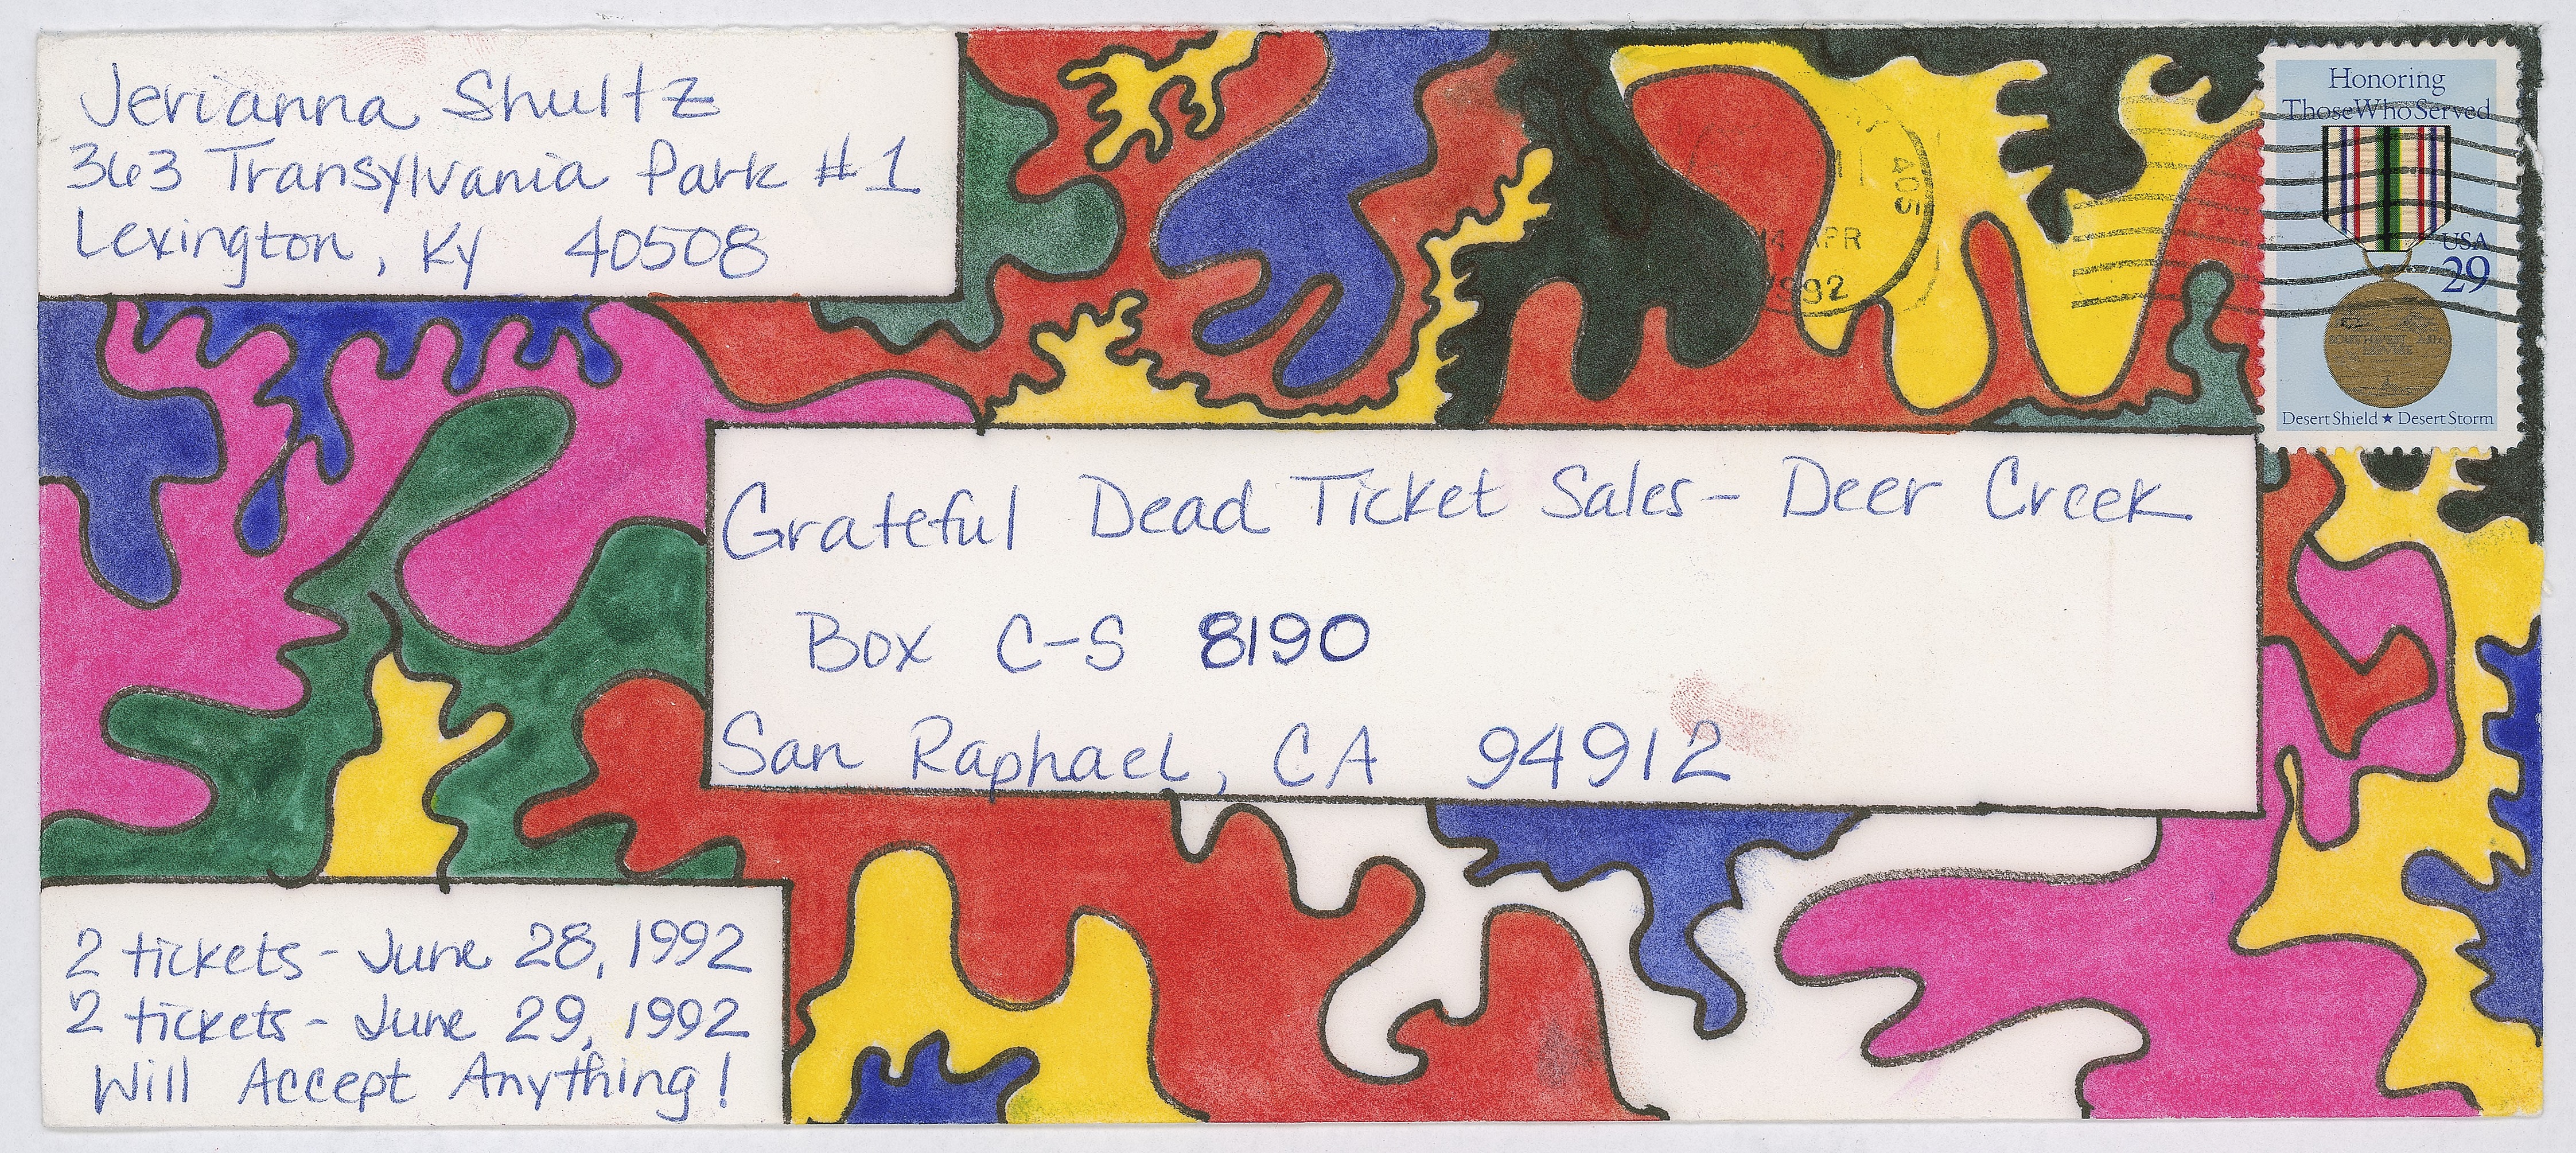 Jerianna Shultz
363 Transylvania Park #1
Lexington, Ky 40508
Honoring
Those Who Served
USA
29
Desert Shield ★ Desert Storm
405
14 APR
1992
Grateful Dead Ticket Sales - Deer Creek
Box C-S 8190
San Raphael, CA 94912
2 tickets - June 28, 1992
2 tickets - June 29, 1992
Will Accept Anything!